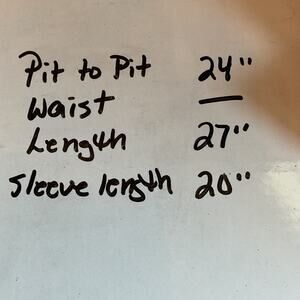 Pit to Pit 24"
Waist —
Length 27"
Sleeve length 20"